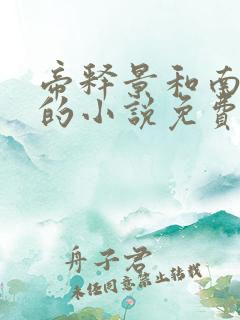 帝释景和南
的小说免費
舟子君
未经同意禁止转载